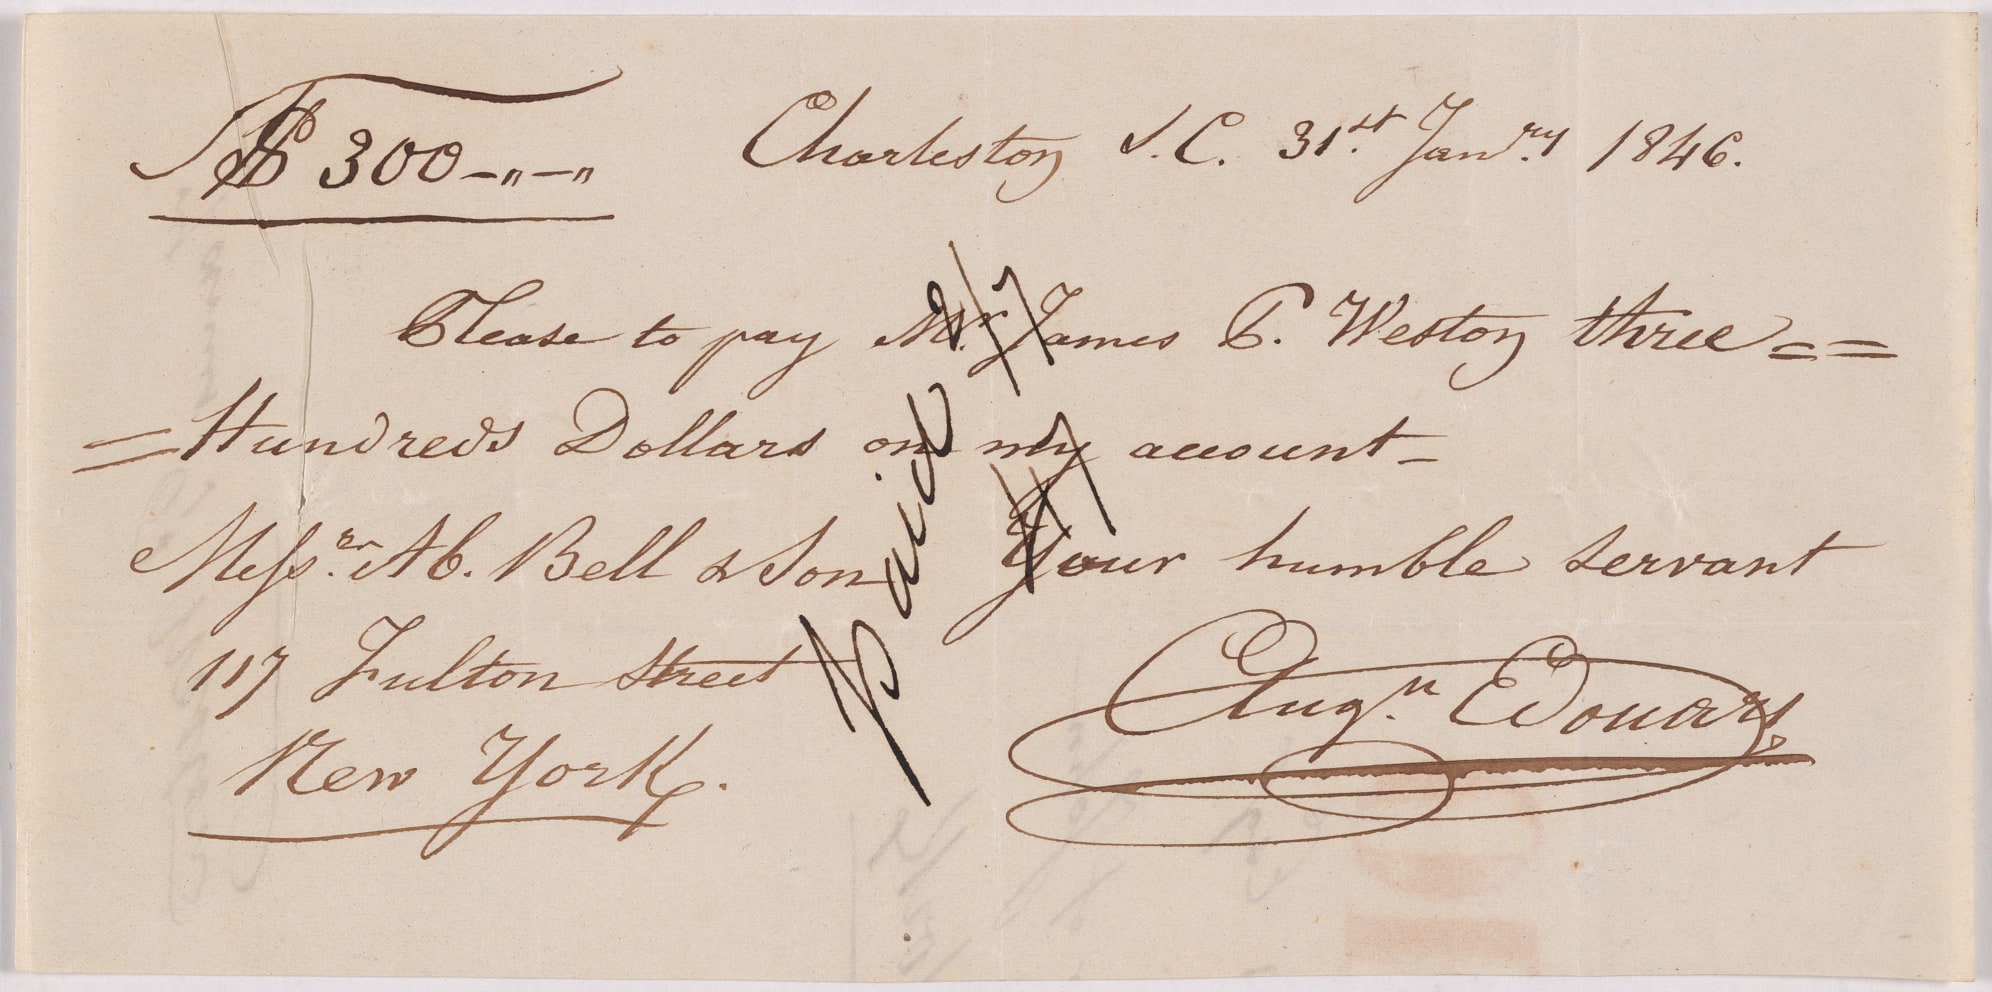 $ 300-"-" Charleston S.C. 31st. Janry. 1846.
Please to pay Mr. James P. Weston three = =
= Hundreds Dollars on my account -
Messrs. A. Bell & Son Your humble servant
117 Fulton Street
New York.
Augn. Edouart
paid